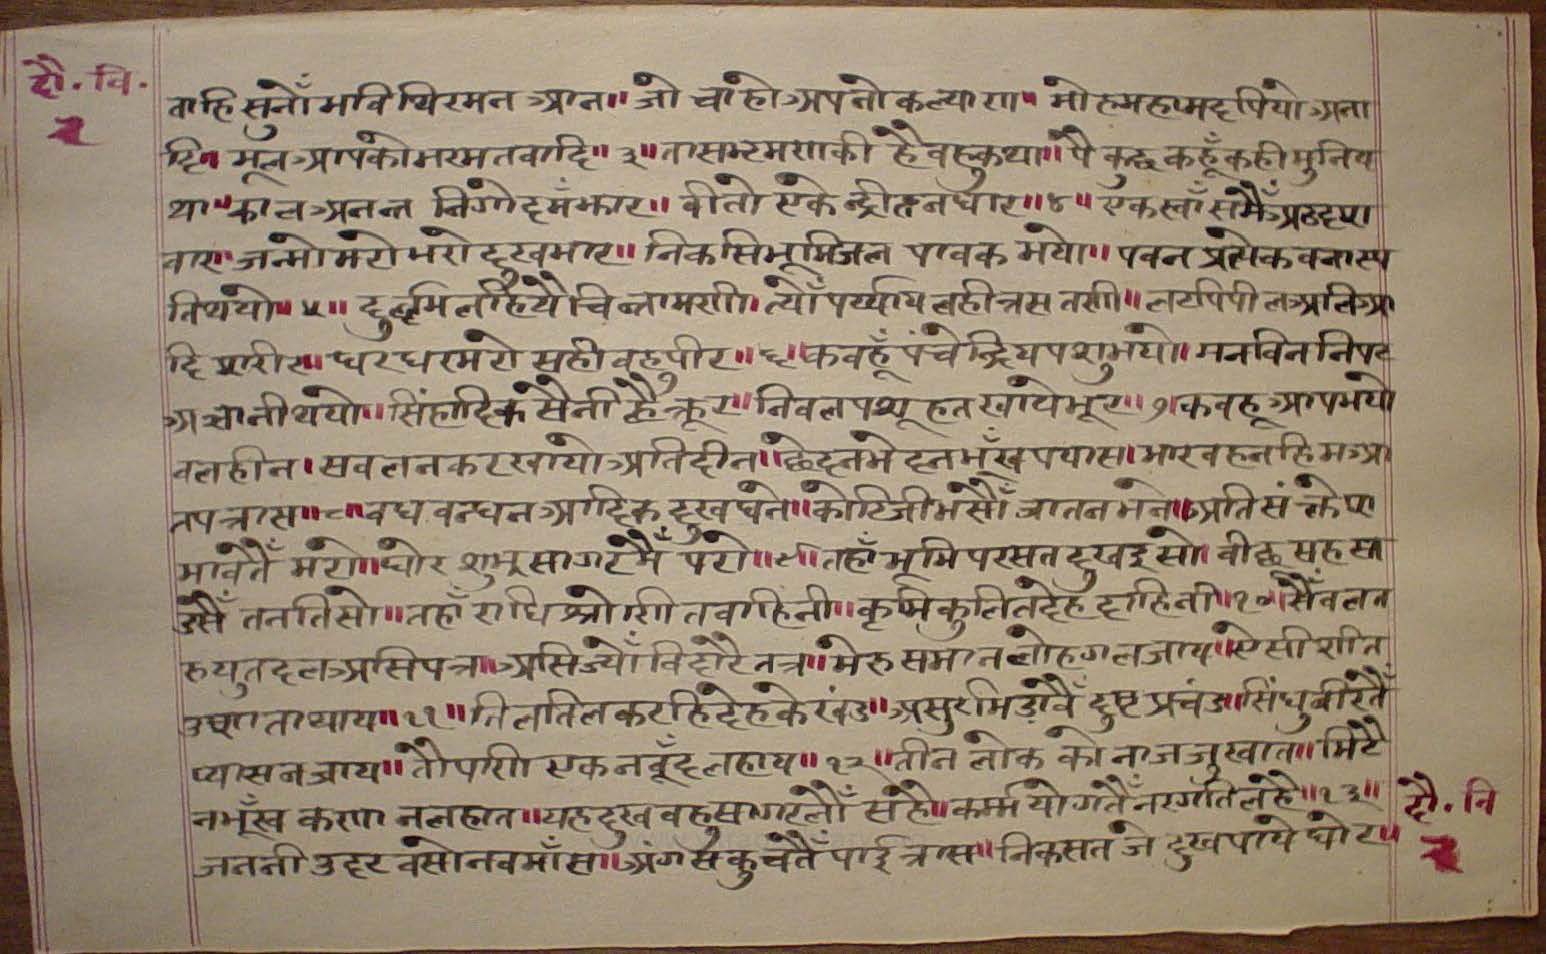 दौ. वि.
२
ताहि सुनोँ भवि थिर मन आन॥ जो चाहो अपनो कल्याण॥ मोह महामद पियो अना
दि॥ भूल आपको भरमत वादि॥ ३॥ तास भ्रमण की है वहु कथा॥ पै कुछ कहूँ कही मुनि य
था॥ काल अनन्त निगोद मँझार॥ वीतो एकेन्द्री तन धार॥ ४॥ एक स्वाँस मैँ अठ दश
वार॥ जन्मो मरो भरो दुख भार॥ निकसि भूमि जल पावक भयो॥ पवन प्रत्येक वनास्प
ति थयो॥ ५॥ दुर्ल्लभ लहि ज्यौ चिन्तामणी। त्योँ पर्य्याय लही त्रस तणी॥ लट पिपील अलि आ
दि शरीर॥ धर धर मरो सही वहु पीर॥ ६॥ कवहूँ पंचेन्द्रिय पशु भयो। मन विन निपट
अज्ञानी थयो॥ सिंहादिक सैनी ह्वै क्रूर॥ निवल पशू हत खाये भूर॥ ७। कवहू आप भयो
वलहीन। सवलन कर खायो अति दीन॥ छेदन भेदन भूँख पयास। भार वहन हिम आ
तप त्रास॥ ८॥ वध वन्धन आदिक दुख घने॥ कोटि जीभसोँ जात न भने॥ अति संक्लेश
भावतैँ मरो॥ घोर शुभ्र सागर मैँ परो॥ ९॥ तहाँ भूमि परसत दुख इसो। वीछू सहस
डसैँ तन तिसो॥ तहाँ राधि श्रोणित वाहिनी॥ कृमि कुलित देह दाहिनी॥ १०॥ सैँवल त
रु युत दल असिपत्र॥ असि ज्योँ विदारै तत्र॥ मेरु समान लोह गल जाय॥ ऐसी शीत
उष्णता थाय॥ ११॥ तिल तिल करहि देह के खंड॥ असुर भिड़ावैँ दुष्ट प्रचंड॥ सिंधु नीरतैँ
प्यास न जाय॥ तो पणी एक न वूँद लहाय॥ १२॥ तीन लोक को नाज जु खात॥ मिटै
न भूँख कणा न लहात॥ यह दुख वहु सागरलौँ सहै॥ कर्म्म योगतैँ नरगति लहै॥ १३॥
दौ. वि
२
जननी उदर वसो नव माँस॥ अंग सकुचतैँ पाई त्रास॥ निकसत जे दुख पाये घोर॥